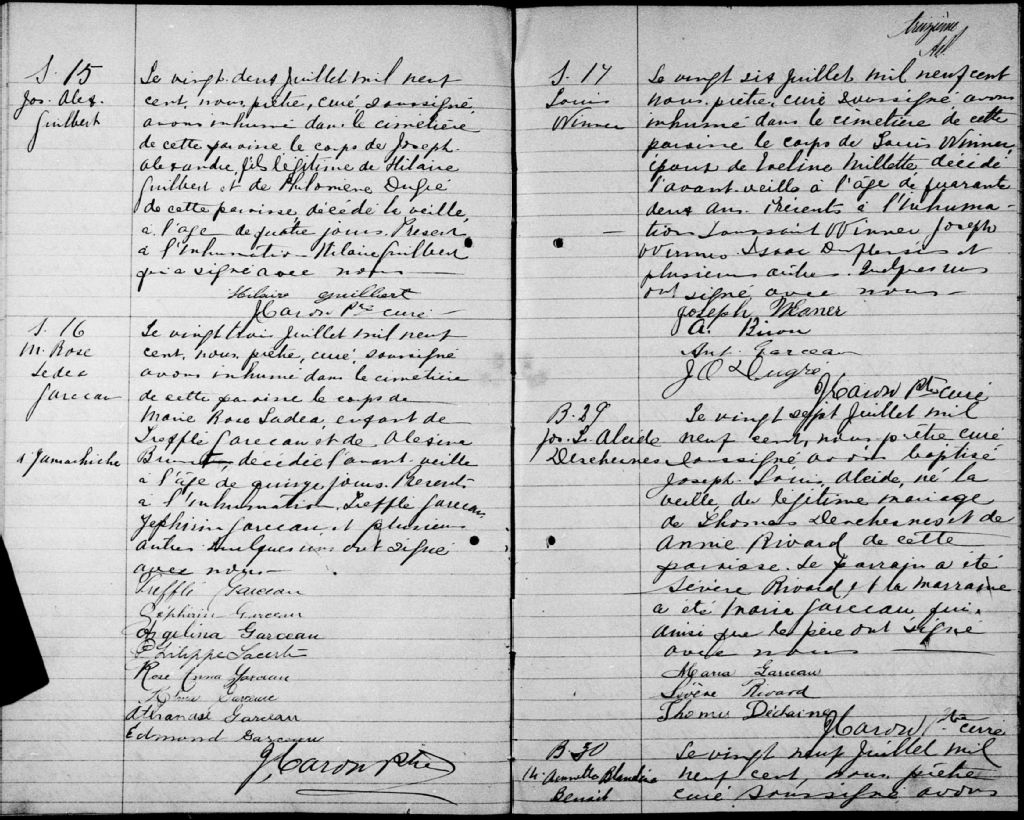 S. 15
Jos. Alex.
Guilbert
Le vingt-deux Juillet mil neuf
cent, nous, prêtre, curé soussigné
avons inhumé dans le cimetière
de cette paroisse le corps de Joseph
Alexandre, fils légitime de Hilaire
Guilbert et de Philomène Dugré
de cette paroisse, décédé la veille,
à l'âge de quatre jours. Présent
à l'Inhumation Hilaire Guilbert
qui a signé avec nous
Hilaire Guilbert
Ptre curé
S. 16
M. Rose
Ledea
Garceau
à Yamachiche
Le vingt trois Juillet mil neuf
cent, nous, prêtre, curé, soussigné
avons inhumé dans le cimetière
de cette paroisse le corps de
Marie Rose Ladea, enfant de
Trefflé Garceau et de Alexina
décédée l'avant-veille
à l'âge de quinze jours. Présents
à l'Inhumation, Trefflé Garceau,
Zéphirin Garceau et plusieurs
autres. Quelques uns ont signé
avec nous
Trefflé Garceau
Zéphirin Garceau
Angelina Garceau
Philippe Lacerte
Rose Anna Garceau
Garceau
Garceau
Edmond Garceau
Ptre
treizième
S. 17
Louis
Winner
Le vingt six Juillet mil neuf cent
nous, prêtre, curé soussigné, avons
inhumé dans le cimetière de cette
paroisse le corps de Louis Winner,
époux de Eveline Millette, décédé
l'avant-veille à l'âge de quarante
deux ans. Présents à l'Inhuma-
tion Toussaint Winner Joseph
Winner, Isaac Duplessis et
plusieurs autres. Quelques uns
ont signé avec nous
Joseph
A. Biron
Ant. Garceau
J O Dugré
Ptre curé
B. 29
Jos. Ls. Alcide
Deschesnes
Le vingt sept Juillet mil
neuf cent, nous prêtre curé
soussigné avons baptisé
Joseph, Louis, Alcide, né la
veille, du légitime mariage
de Thomas Deschesnes et de
Annie Rivard de cette
paroisse. Le parrain a été
Sévère Rivard, et la marraine
a été Maria Garceau qui,
ainsi que le père ont signé
avec nous
Maria Garceau
Sévère Rivard
Thomas Déchaine
Ptre curé
B. 30
M. Annette Blandine
Benoit
Le vingt neuf Juillet mil
neuf cent, nous prêtre
curé soussigné avons